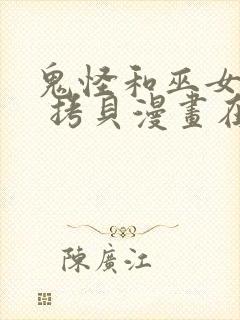 鬼怪和巫女
拷貝漫畫在
陳廣江